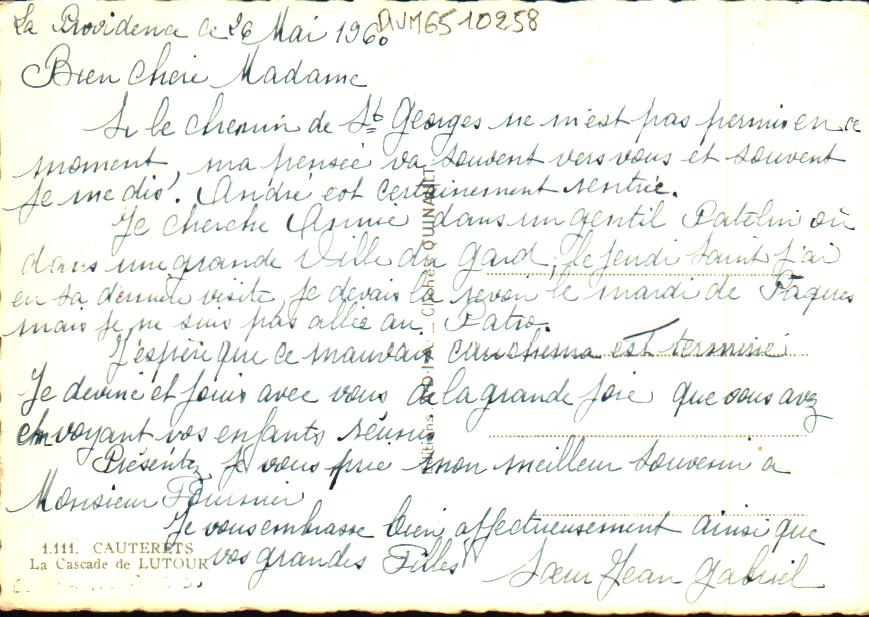 La Providence ce 26 Mai 1960
DIVM6510258
Bien chère Madame
Si le chemin de St Georges ne m'est pas permis en ce
moment, ma pensée va souvent vers vous et souvent
je me dis'. André est certainement rentré.
Je cherche Annie dans un gentil Patelin où
dans une grande Ville du Gard, le jeudi Saint j'ai
eu sa dernière visite, je devais la revoir le mardi de Pâques
mais je ne suis pas allée au Patro.
J'espère que ce mauvais cauchema est terminé
Je devine et jouis avec vous de la grande joie que vous avez
en voyant vos enfants réunis
Présentez je vous prie mon meilleur souvenir a
Monsieur Fournier
Je vous embrasse bien affectueusement ainsi que
vos grandes Filles
Sœur Jean Gabriel
1.111. CAUTERETS
La Cascade de LUTOUR
Clichés QUINAULT